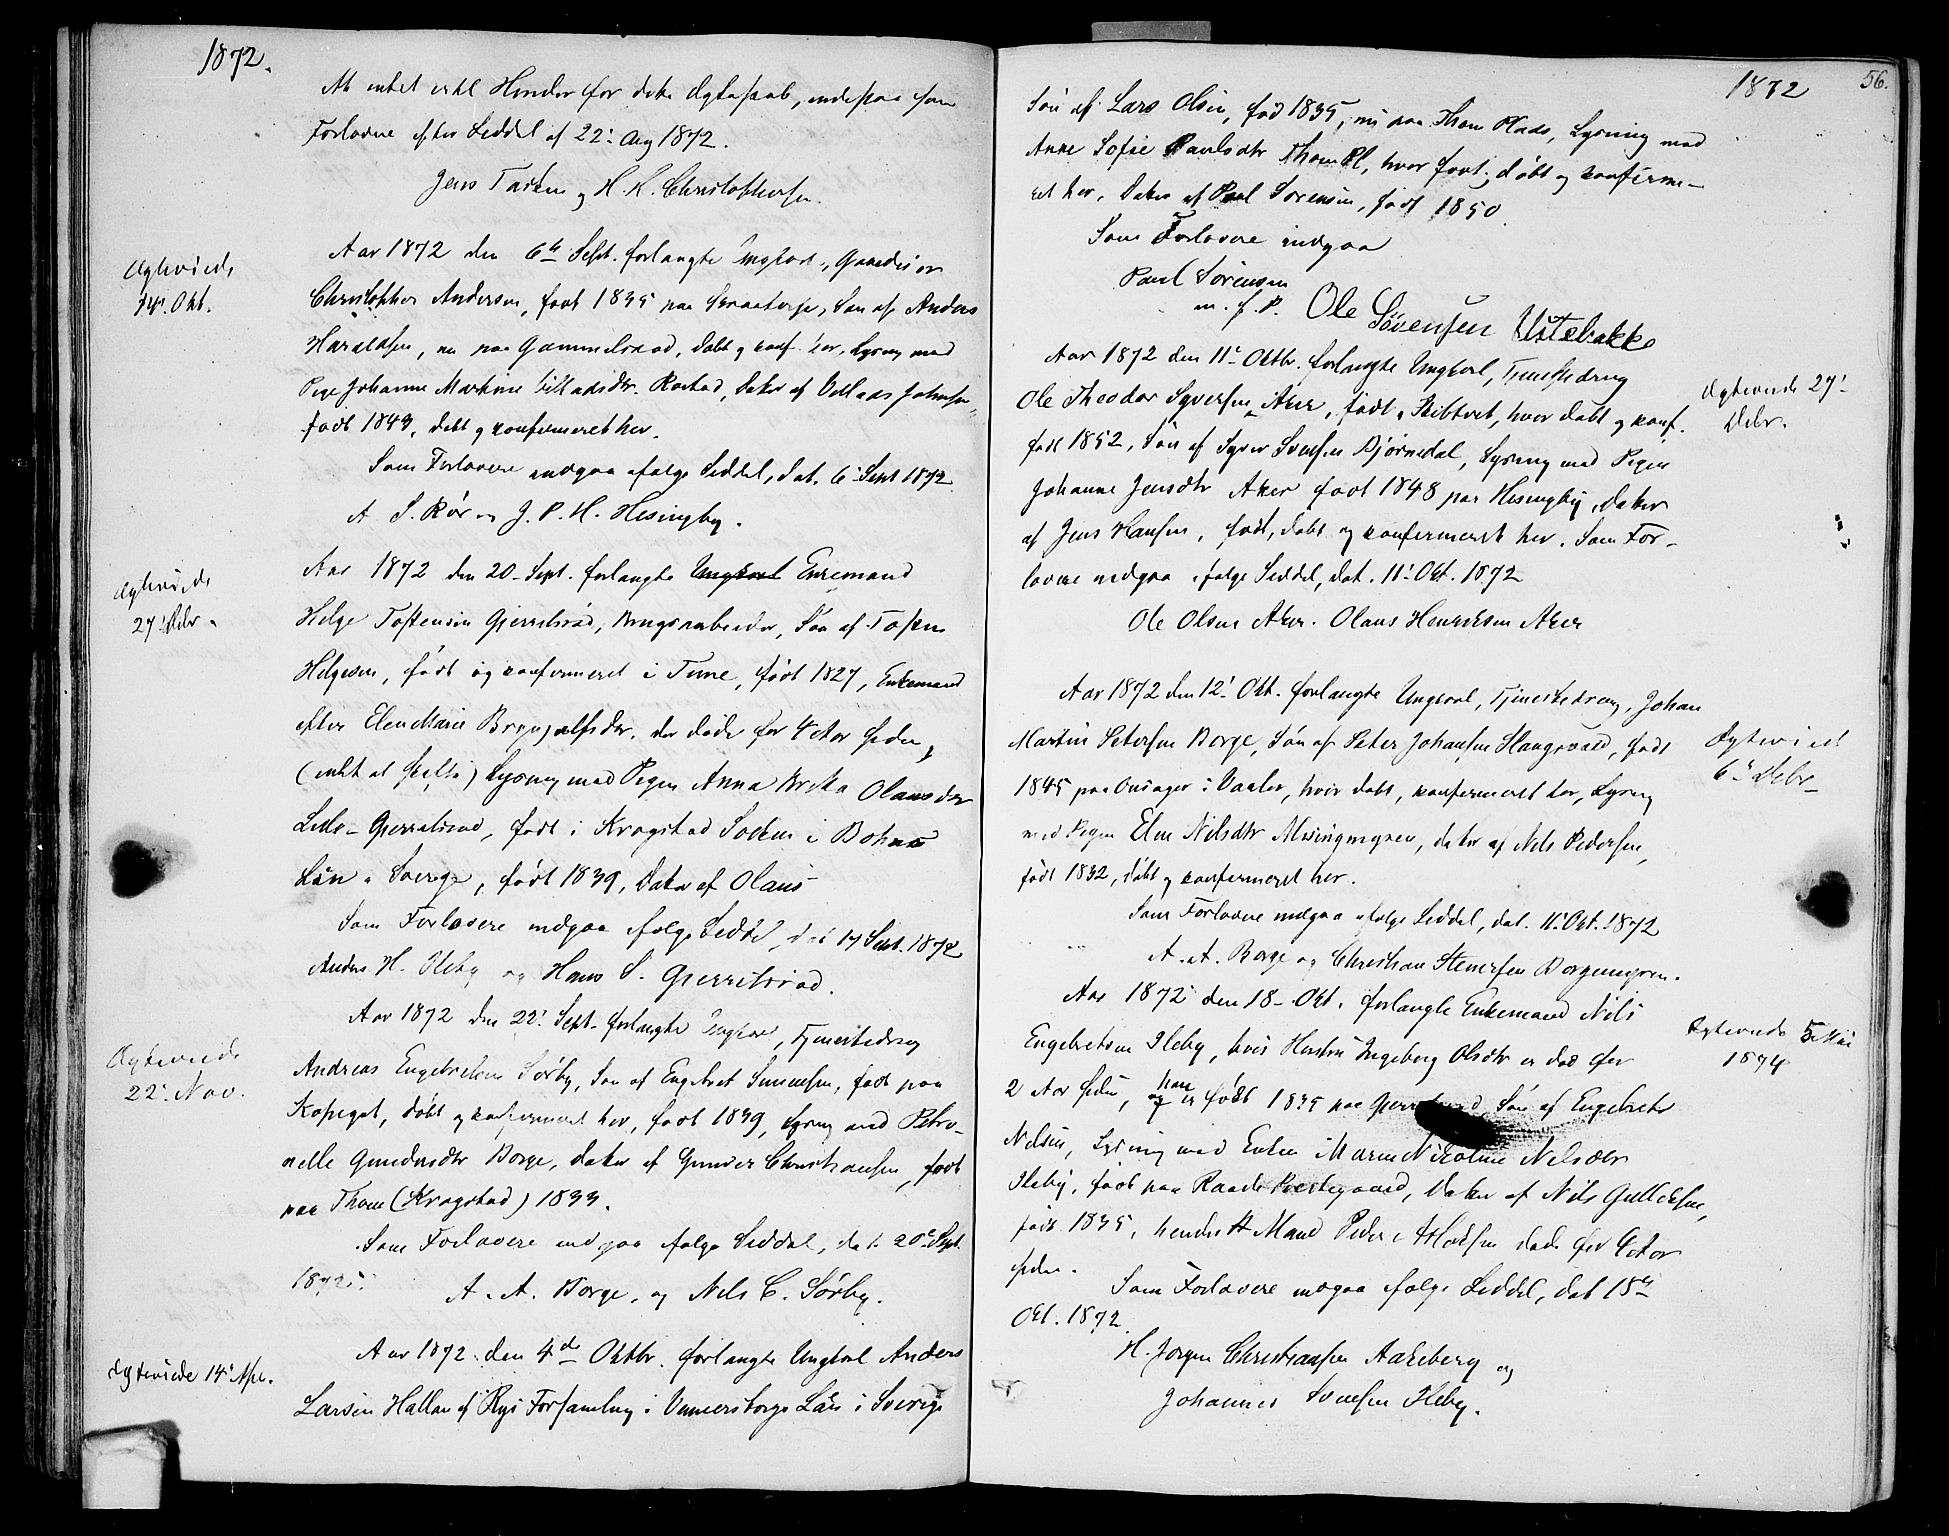 1872.
At intet isti Hinder for dette Ægteskab, indestaa som
Forlovere efter Seddel af 22' Aug 1872.
Jens og H. K. Christophersen.
Ægteviede
14' Okt.
Aar 1872 den 6te Sept. forlangte Ungkarl, Gaardeier
Christopher Andersen, født 1835 paa, Søn af Anders
Haraldsen, nu paa Gammelsrød, døbt og conf. her, Lysning med
Pige Johanne Martine Rostad, Datter af Johnsen,
født 1843, døbt og confirmeret her.
Som Forlovere indgaa ifølge Seddel, dat. 6' Sept 1872
A. S. Rør og J. P. H. Hesingby.
Ægteviede
27' Debr.
Aar 1872 den 20' Sept. forlangte Ungkarl Enkemand
Helge Tostensen Gjerrelsrød, Brugsarbeider, Søn af Tosten
Helgesen, født og confirmeret i Tune, født 1827, Enkemand
efter Elen Marie Brynjulfsdtr. der døde for 4 Aar siden,
(intet at skifte) Lysning med Pigen Anna Brita Olausdtr
Lille-Gjerrelsrød, født i Krogstad Sokken i Bohus
Län i Sverige, født 1839, Datter af Olaus
Som Forlovere indgaa ifølge Seddel, dat 17 Sept. 1872
Anders H. Oleby og Hans S. Gjerrelsrød.
Ægteviede
22' Nov.
Aar 1872 den 22' Sept. forlangte Ungkarl, Tjenestedreng
Andreas Engebretsen Sørby, Søn af Engebret Simensen, født paa
Kopeget, døbt og confirmeret her, født 1839, Lysning med Petro-
nelle Gundersdtr Borge, Datter af Gunder Christiansen, født
paa Thom (Kragstad) 1833.
Som Forlovere indgaa ifølge Seddel, dat. 20' Sept.
1872.
A. A. Borge, og Nils C. Sørby.
Ægteviede 14' Apl.
Aar 1872 den 4de Oktbr. forlangte Ungkarl Anders
Larsen Hallan af Rys Forsamling i Venersborgs Län i Sverige
1872
56.
Søn af Lars Olsen, fød 1835, nu paa Thom Plads, Lysning med
Anne Sofie Paulsdtr Thom Pl, hvor født, døbt og confirme-
ret her, Datter af Paul Sørensen, født 1850.
Som Forlovere indgaa
Paul Sørensen
m. f. P. Ole Sørensen Ustebakke
Ægteviede 27'
Debr.
Aar 1872 den 11' Oktbr. forlangte Ungkarl, Tjenestedreng
Ole Theodor Syversen Aker, født i Skibtvet, hvor døbt og conf.
født 1852, Søn af Syver Svensen Bjørnedal, Lysning med Pigen
Johanne Jensdtr Aker født 1848 paa Hesingby, Datter
af Jens Hansen, født, døbt og confirmeret her. Som For-
lovere indgaa ifølge Seddel, dat. 11' Okt. 1872
Ole Olsen Aker. Olaus Henriksen Aker
Ægteviede
6' Debr
Aar 1872 den 12' Okt. forlangte Ungkarl, Tjenestedreng, Johan
Martin Petersen Borge, Søn af Peter Johansen Haugsvold, født
1845 paa Onsager i Vaaler, hvor døbt, confirmeret her, Lysning
med Pigen Elen Nilsdtr Missingmyren, datter af Nils Pedersen,
født 1832, døbt og confirmeret her.
Som Forlovere indgaa ifølge Seddel, dat. 11' Okt. 1872
A. A. Borge og Christian Stenersen Borgemyren.
Ægteviede 5 Mai
1874
Aar 1872 den 18' Okt. forlangte Enkemand Nils
Engebretsen Ileby, hvis Hustru Ingeborg Olsdtr er død for
2 Aar siden, han
og er født 1835 paa Gjerrelsrød, Søn af Engebret
Nilsen, Lysning med Enken Maren Nicoline Nilsdtr
Ileby, født paa Raade Prestegaard, Datter af Nils Gulliksen,
født 1835, hendes Mand Peder døde for 6 Aar
siden.
Som Forlovere indgaa ifølge Seddel, dat 18'
Okt. 1872
H. Jørgen Christiansen Aakeberg og
Johannes Svensen Ileby.